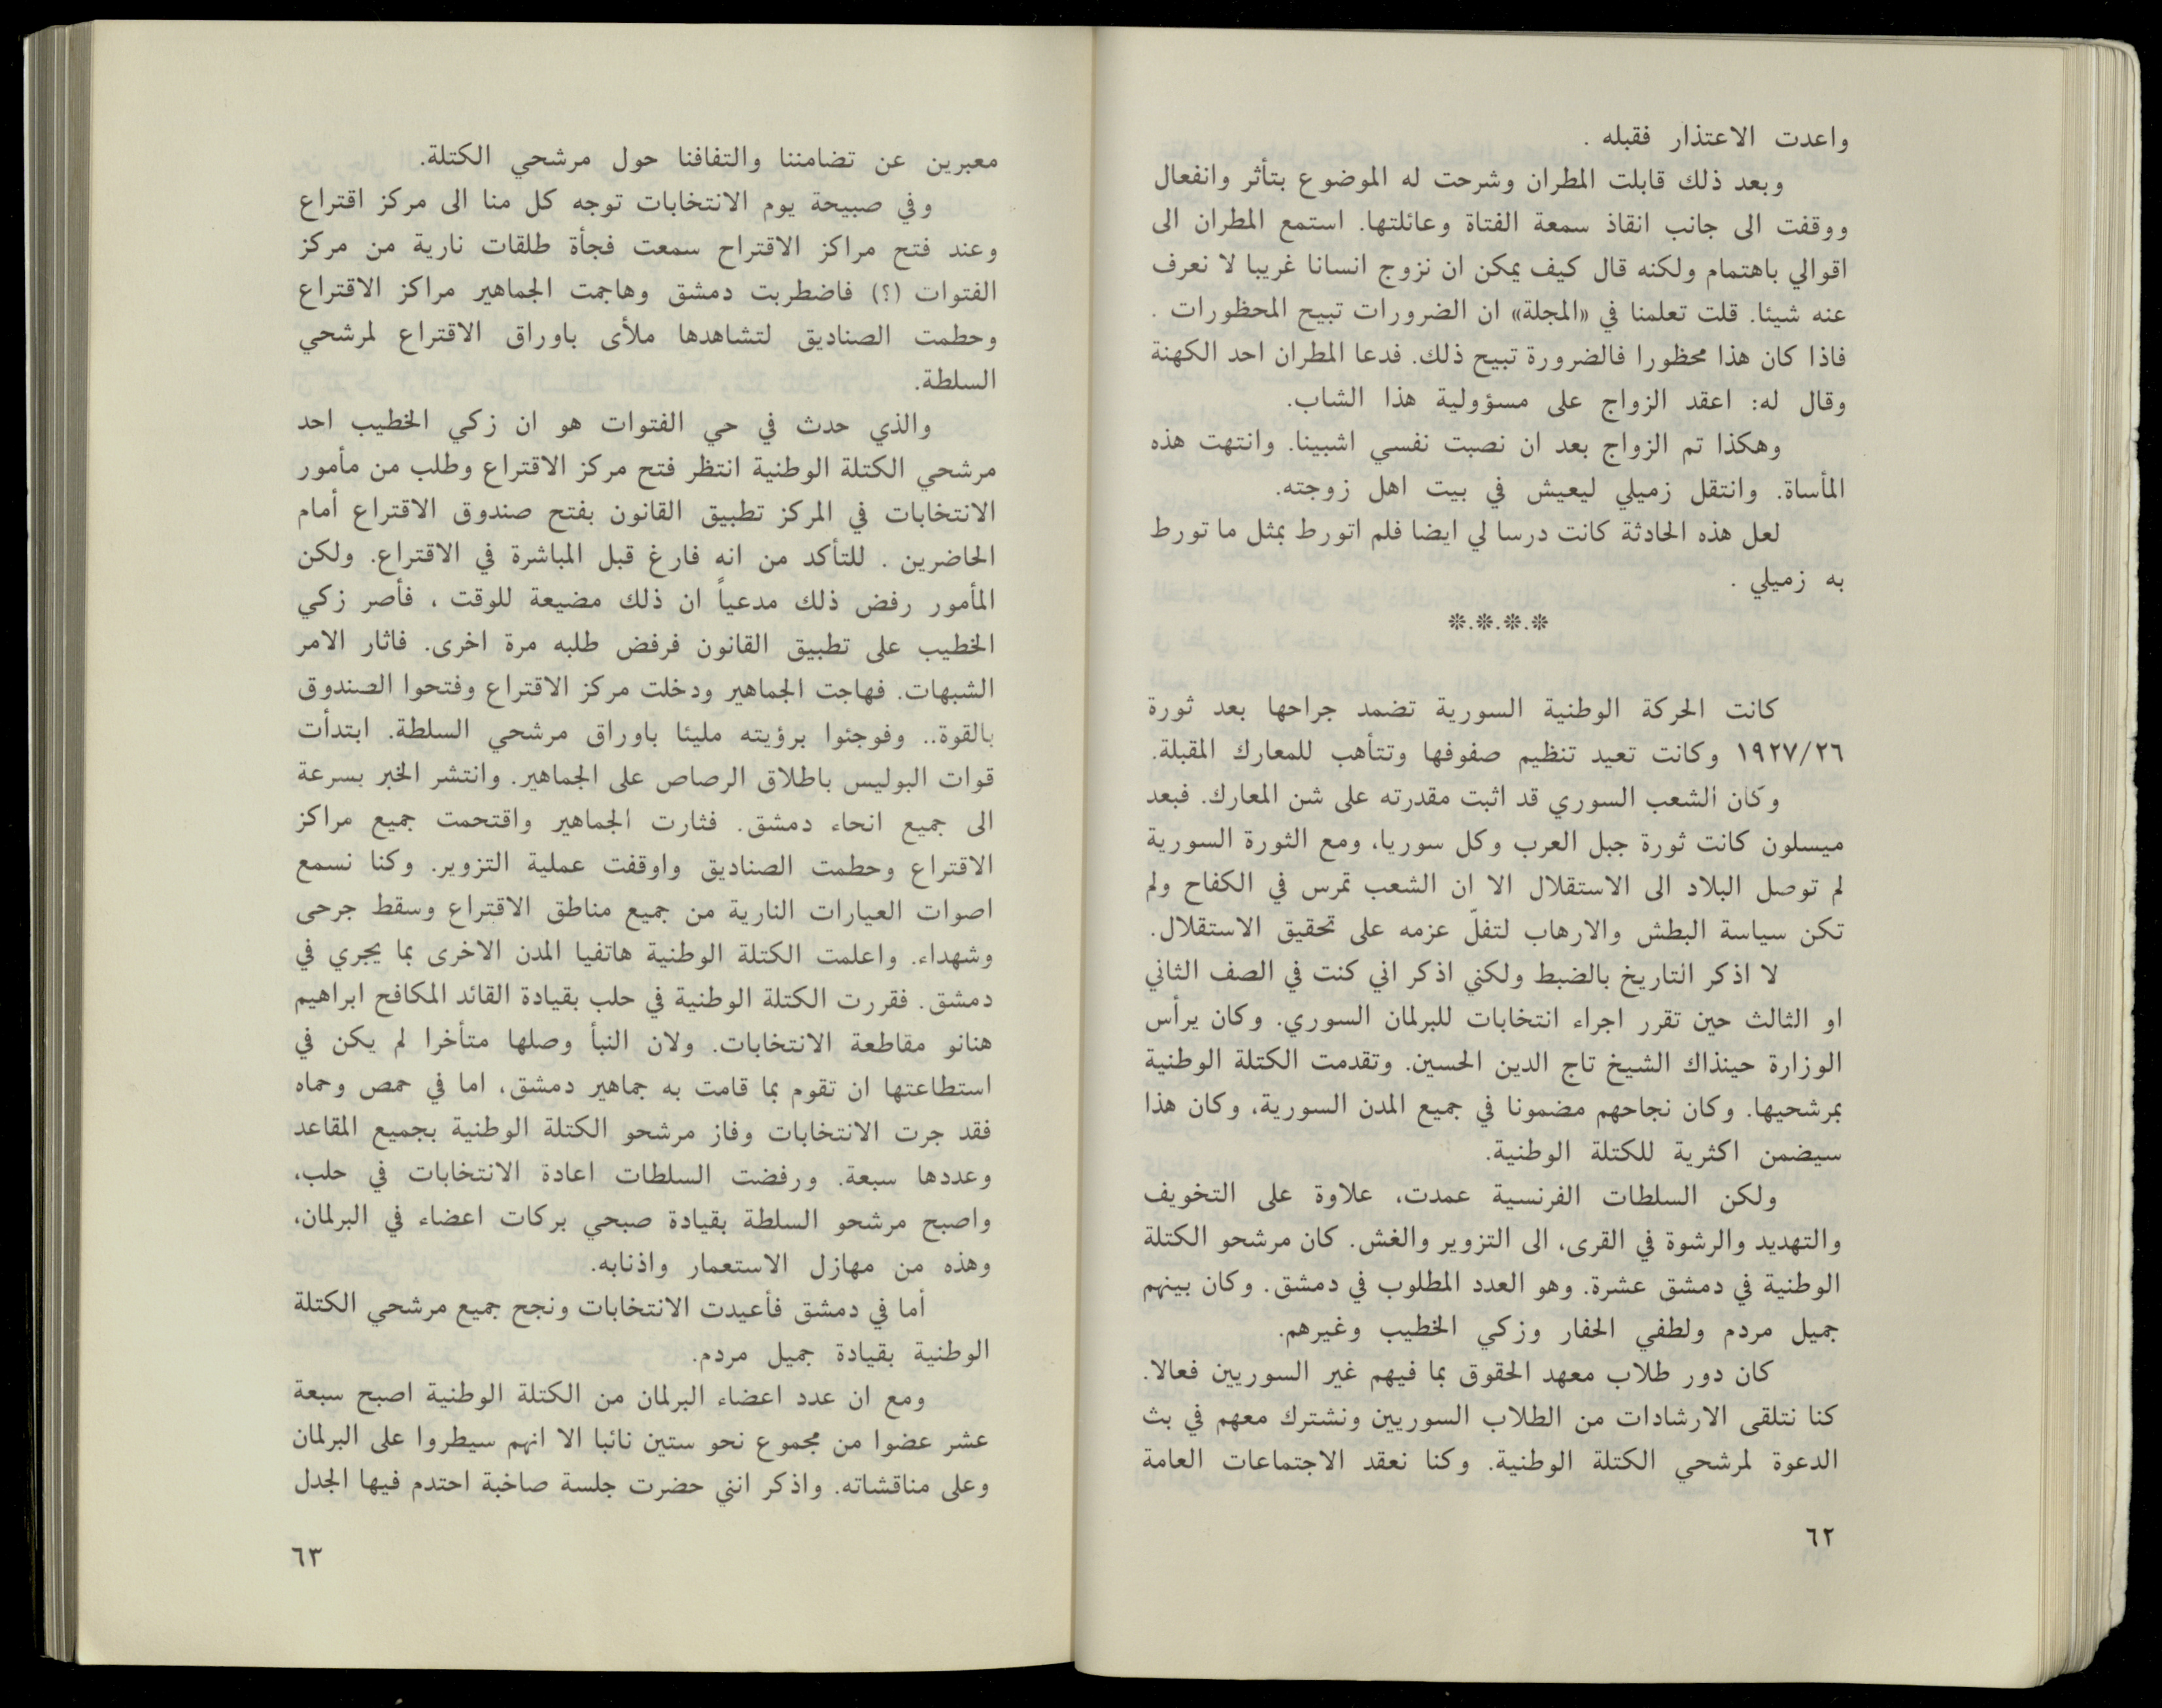 واعدت الاعتذار فقبله .
وبعد ذلك قابلت المطران وشرحت له الموضوع بتأثر وانفعال
ووقفت الى جانب انقاذ سمعة الفتاة وعائلتها. استمع المطران الى
اقوالي باهتمام ولكنه قال كيف يمكن ان نزوج انسانا غريبا لا نعرف
عنه شيئا. قلت تعلمنا في «المجلة» ان الضرورات تبيح المحظورات .
فاذا كان هذا محظورا فالضرورة تبيح ذلك. فدعا المطران احد الكهنة
وقال له: اعقد الزواج على مسؤولية هذا الشاب.
وهكذا تم الزواج بعد ان نصبت نفسي اشبينا. وانتهت هذه
المأساة. وانتقل زميلي ليعيش في بيت اهل زوجته.
لعل هذه الحادثة كانت درسا لي ايضا فلم اتورط بمثل ما تورط
به زميلي .
*.*.*.*
كانت الحركة الوطنية السورية تضمد جراحها بعد ثورة
١٩٢٧/٢٦ وكانت تعيد تنظيم صفوفها وتتأهب للمعارك المقبلة.
وكان الشعب السوري قد اثبت مقدرته على شن المعارك. فبعد
ميسلون كانت ثورة جبل العرب وكل سوريا، ومع الثورة السورية
لم توصل البلاد الى الاستقلال الا ان الشعب تمرس في الكفاح ولم
تكن سياسة البطش والارهاب لتفلّ عزمه على تحقيق الاستقلال.
لا اذكر التاريخ بالضبط ولكني اذكر اني كنت في الصف الثاني
او الثالث حين تقرر اجراء انتخابات للبرلمان السوري. وكان يرأس
الوزارة حينذاك الشيخ تاج الدين الحسين. وتقدمت الكتلة الوطنية
بمرشحيها. وكان نجاحهم مضمونا في جميع المدن السورية، وكان هذا
سيضمن اكثرية للكتلة الوطنية.
ولكن السلطات الفرنسية عمدت، علاوة على التخويف
والتهديد والرشوة في القرى، الى التزوير والغش. كان مرشحو الكتلة
الوطنية في دمشق عشرة. وهو العدد المطلوب في دمشق. وكان بينهم
جميل مردم ولطفي الحفار وزكي الخطيب وغيرهم.
كان دور طلاب معهد الحقوق بما فيهم غير السوريين فعالا.
كنا نتلقى الارشادات من الطلاب السوريين ونشترك معهم في بث
الدعوة لمرشحي الكتلة الوطنية. وكنا نعقد الاجتماعات العامة
٦٢
معبرين عن تضامننا والتفافنا حول مرشحي الكتلة.
وفي صبيحة يوم الانتخابات توجه كل منا الى مركز اقتراع
وعند فتح مراكز الاقتراح سمعت فجأة طلقات نارية من مركز
الفتوات (؟) فاضطربت دمشق وهاجمت الجماهير مراكز الاقتراع
وحطمت الصناديق لتشاهدها ملأى باوراق الاقتراع لمرشحي
السلطة.
والذي حدث في حي الفتوات هو ان زكي الخطيب احد
مرشحي الكتلة الوطنية انتظر فتح مركز الاقتراع وطلب من مأمور
الانتخابات في المركز تطبيق القانون بفتح صندوق الاقتراع أمام
الحاضرين . للتأكد من انه فارغ قبل المباشرة في الاقتراع. ولكن
المأمور رفض ذلك مدعياً ان ذلك مضيعة للوقت ، فأصر زكي
الخطيب على تطبيق القانون فرفض طلبه مرة اخرى. فاثار الامر
الشبهات. فهاجت الجماهير ودخلت مركز الاقتراع وفتحوا الصندوق
بالقوة.. وفوجئوا برؤيته مليئا باوراق مرشحي السلطة. ابتدأت
قوات البوليس باطلاق الرصاص على الجماهير. وانتشر الخبر بسرعة
الى جميع انحاء دمشق. فثارت الجماهير واقتحمت جميع مراكز
الاقتراع وحطمت الصناديق واوقفت عملية التزوير. وكنا نسمع
اصوات العيارات النارية من جميع مناطق الاقتراع وسقط جرحى
وشهداء. واعلمت الكتلة الوطنية هاتفيا المدن الاخرى بما يجري في
دمشق. فقررت الكتلة الوطنية في حلب بقيادة القائد المكافح ابراهيم
هنانو مقاطعة الانتخابات. ولان النبأ وصلها متأخرا لم يكن في
استطاعتها ان تقوم بما قامت به جماهير دمشق، اما في حمص وحماه
فقد جرت الانتخابات وفاز مرشحو الكتلة الوطنية بجميع المقاعد
وعددها سبعة. ورفضت السلطات اعادة الانتخابات في حلب،
واصبح مرشحو السلطة بقيادة صبحي بركات اعضاء في البرلمان،
وهذه من مهازل الاستعمار واذنابه.
أما في دمشق فأعيدت الانتخابات ونجح جميع مرشحي الكتلة
الوطنية بقيادة جميل مردم.
ومع ان عدد اعضاء البرلمان من الكتلة الوطنية اصبح سبعة
عشر عضوا من مجموع نحو ستين نائبا الا انهم سيطروا على البرلمان
وعلى مناقشاته. واذكر انني حضرت جلسة صاخبة احتدم فيها الجدل
٦٣